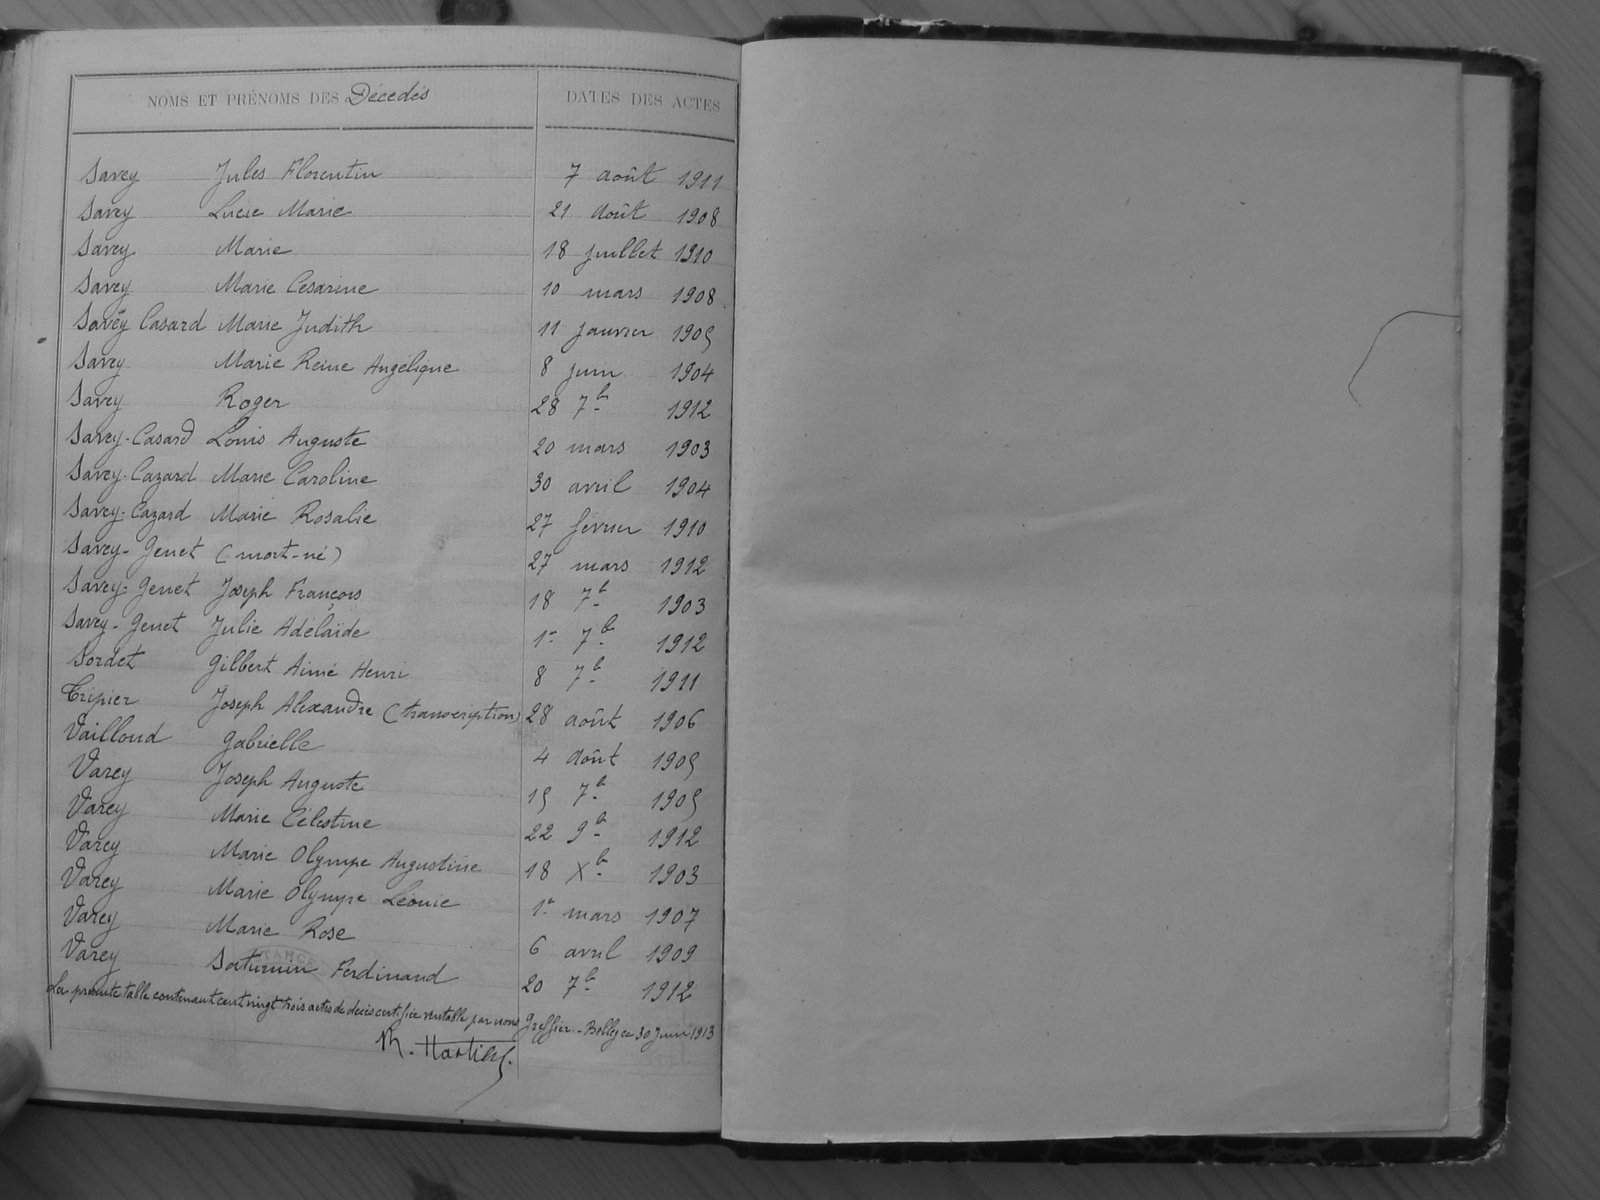 NOMS ET PRÉNOMS DES Décedés DATES DES ACTES
Savey Jules Florentin 7 août 1911
Savey Lucie Marie 21 août 1908
Savey Marie 18 juillet 1910
Savey Marie Césarine 10 mars 1908
Savey Casard Marie Judith 11 janvier 1905
Savey Marie Reine Angélique 8 juin 1904
Savey Roger 28 7b 1912
Savey-Casard Louis Auguste 20 mars 1903
Savey-Cazard Marie Caroline 30 avril 1904
Savey-Cazard Marie Rosalie 27 février 1910
Savey-Genet (mort-né) 27 mars 1912
Savey-Genet Joseph François 18 7b 1903
Savey-Genet Julie Adélaïde 1er 7b 1912
Sordet Gilbert Aimé Henri 8 7b 1911
Tripier Joseph Alexandre (transcription) 28 août 1906
Vailloud Gabrielle 4 août 1905
Varey Joseph Auguste 15 7b 1905
Varey Marie Célestine 22 9b 1912
Varey Marie Olympe Augustine 18 Xb 1903
Varey Marie Olympe Léonie 1er mars 1907
Varey Marie Rose 6 avril 1909
Varey Saturnin Ferdinand 20 7b 1912
La présente table contenant cent vingt trois actes de décès certifiée véritable par nous Greffier - Belley ce 30 Juin 1913